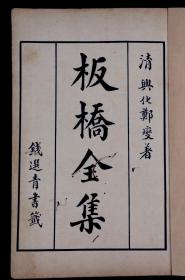 清興化鄭燮著
板橋全集
錢選青書籤